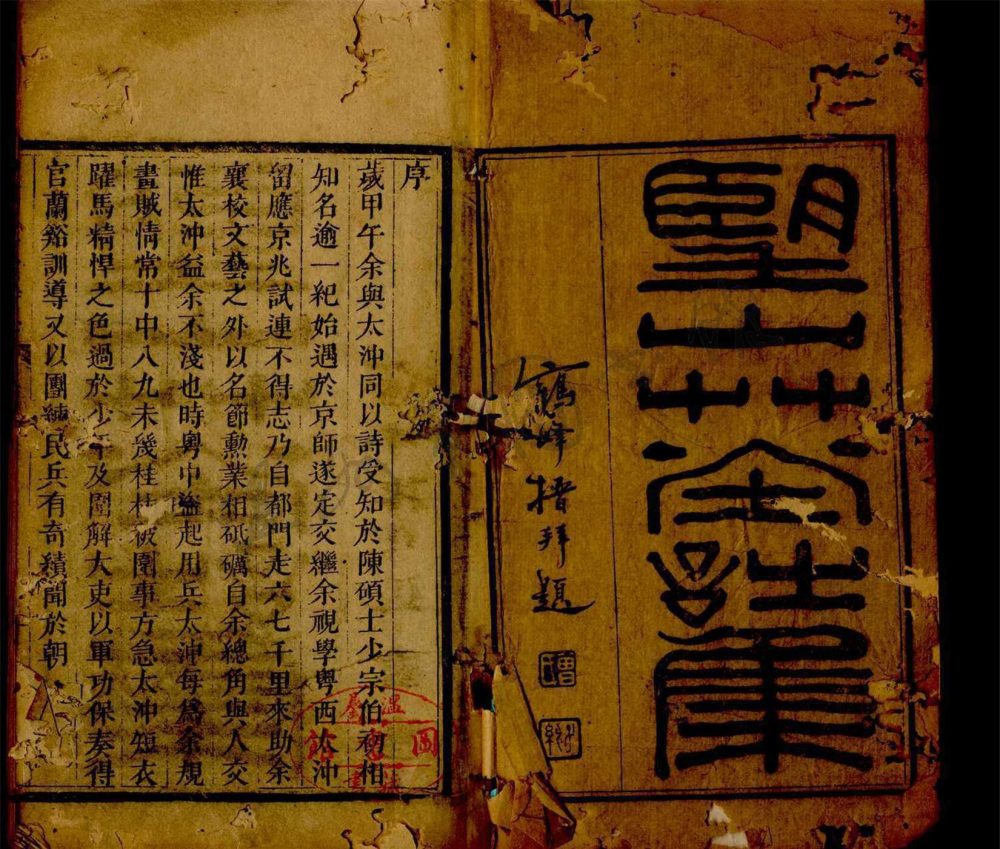 望山艸堂詩集
峰搢拜題
序
歲甲午余與太沖同以詩受知於陳碩士少宗伯初相
知名逾一紀始遇於京師遂定交繼余視學粵西太沖
留應京兆試連不得志乃自都門走六七千里來助余
襄校文藝之外以名節勲業相砥礪自余總角與人交
惟太沖益余不淺也時粵中盜起用兵太沖每爲余規
畫賊情常十中八九未幾桂林被圍事方急太沖短衣
躍馬精悍之色過於少年及圍解大吏以軍功保奏得
官蘭谿訓導又以團練民兵有奇績聞於朝